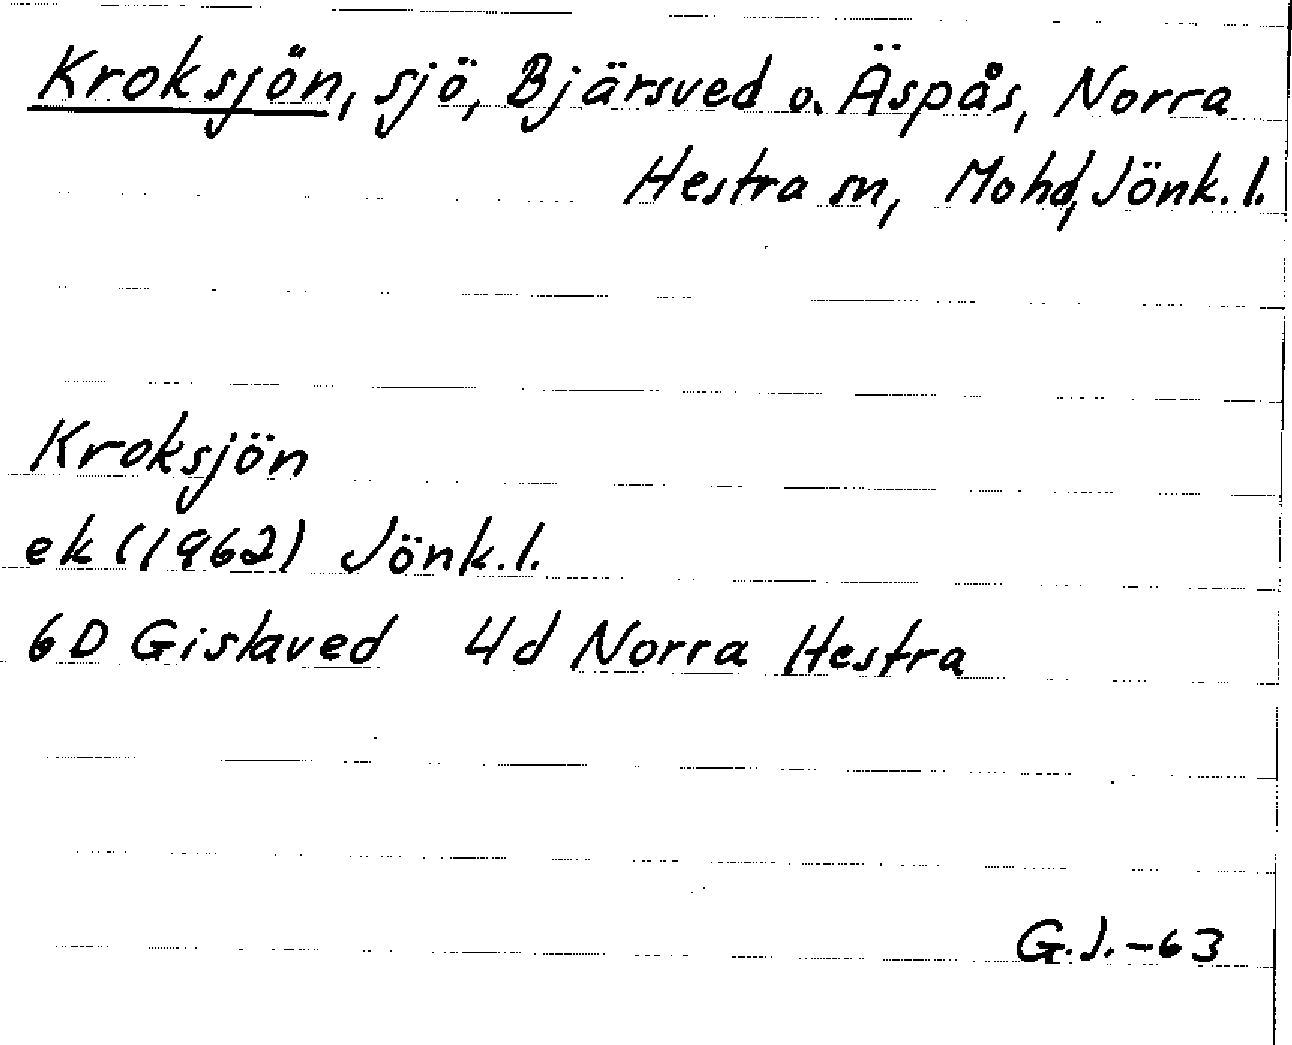 Kroksjön, sjö, Bjärsved o. Äspås, Norra
Hestra sn, Mohd, Jönk.l.
Kroksjön
ek (1962) Jönk.l.
6D Gislaved 4d Norra Hestra
G.J.-63